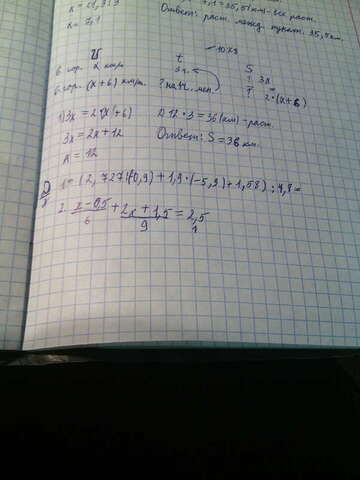 x = 61,9:9
x = 7,1
Ответ: расст. между пункт. 35,5 км.
v t S
в гор. x км/ч 3 ч. ? 3x
в гор. (x+6) км/ч ? на 1 ч. мен ? 2·(x+6)
1) 3x = 2·(x+6) 2) 12·3=36(км)-раст.
3x = 2x + 12 Ответ: S = 36 км.
x = 12
Д/з
1. = (2,727:(-0,9) + 1,9·(-5,2) + 1,58) : 4,8 =
2. x-0,5/6 + 2x+1,5/9 = 2,5/1